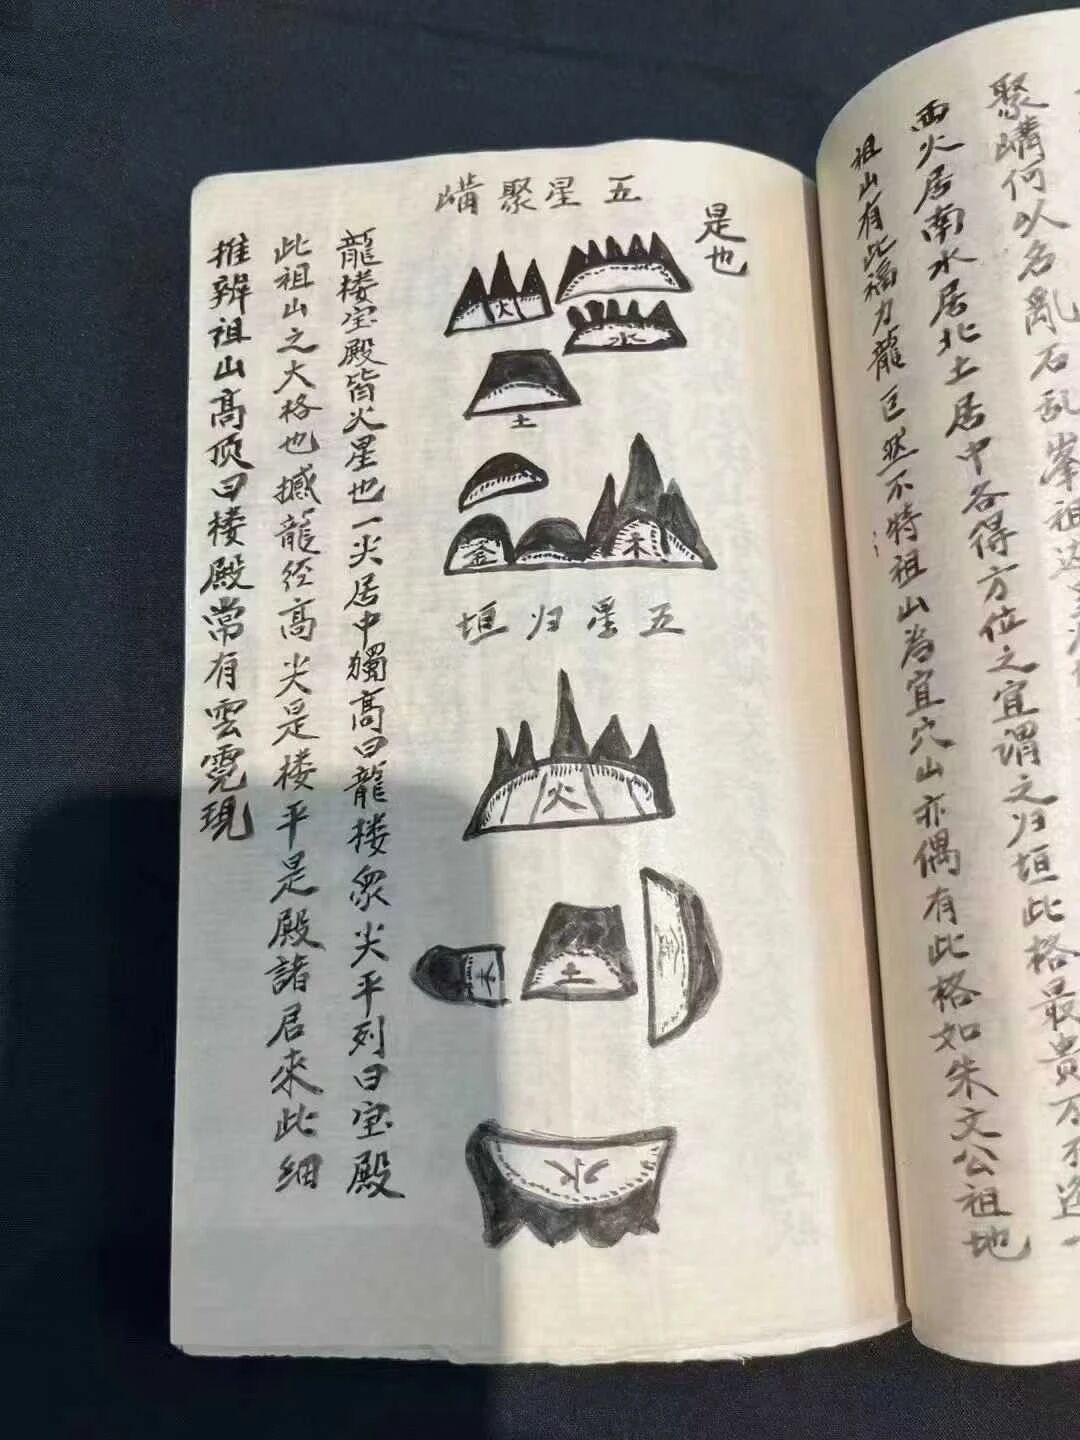 聚媾何以名亂石乱峯祖
西火居南水居北土居中各得方位之宜谓之归垣此格最贵万不
祖山有此福力龍巨然不特祖山為宜穴山亦偶有此格如朱文公祖地
是也
五星聚媾
火
水
土
金
木
五星归垣
火
木
土
金
水
龍楼宝殿皆火星也一尖居中獨高曰龍楼衆尖平列曰宝殿
此祖山之大格也撼龍经高尖是楼平是殿諸君來此细
推辨祖山高顶曰楼殿常有雲霓現